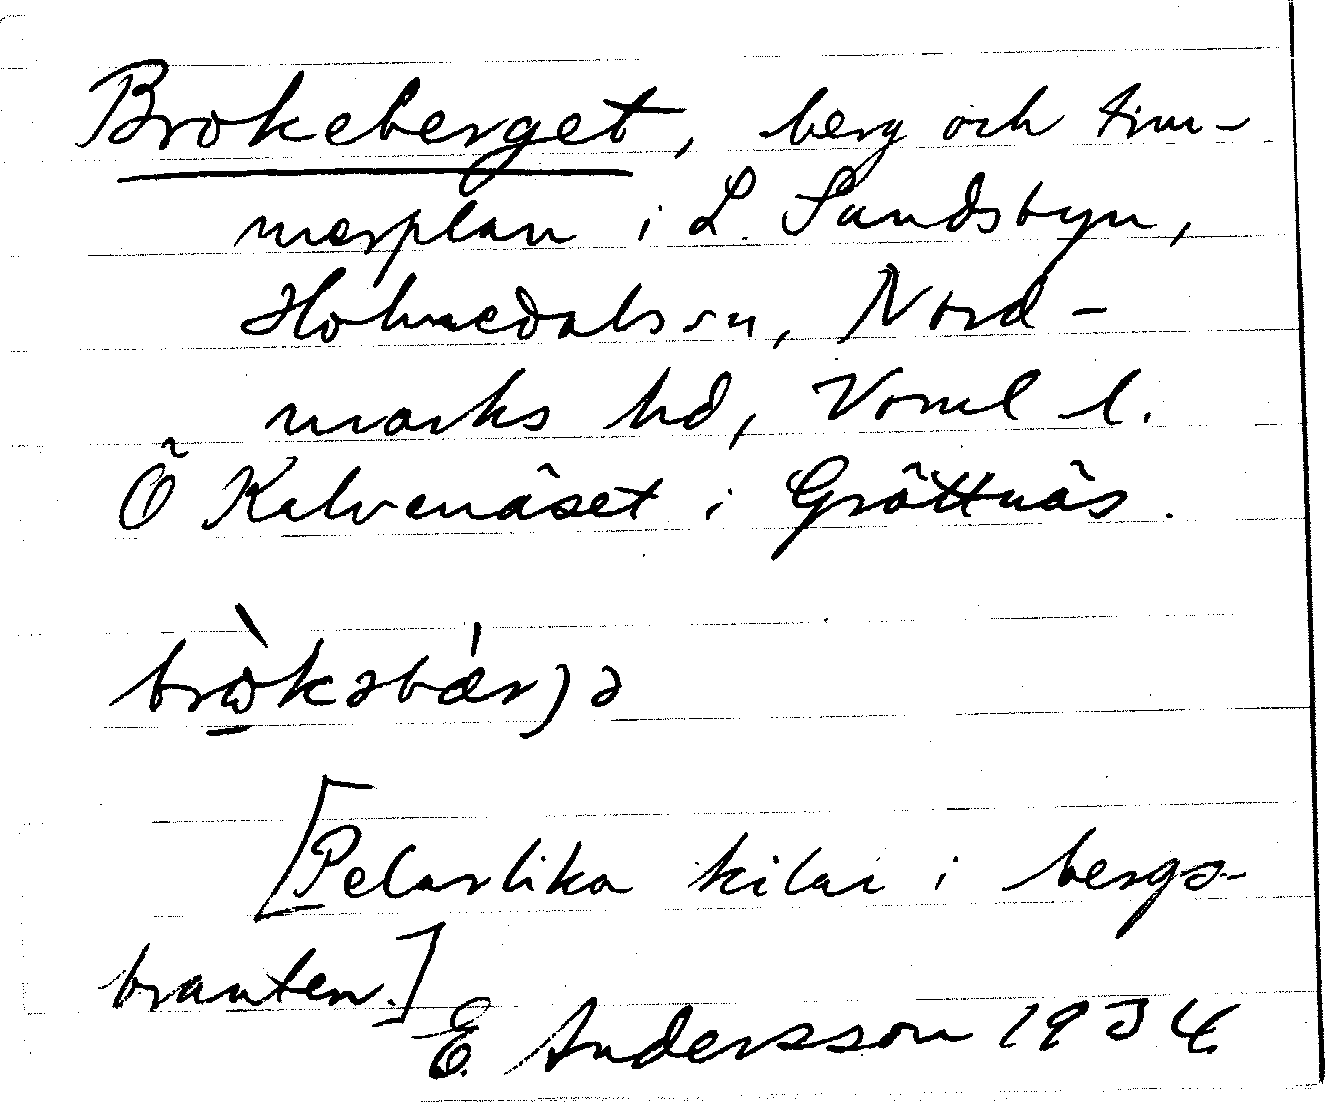 Brokeberget, berg och tim-
merplan i L. Sandsbyn,
Holmedals sn, Nord-
marks hd, Värml l.
Ö Kalvenäset i Gröttnäs.
brò̲kəbǽrjə
[Pelarlika kilar i bergs-
branten.]
E. Andersson 1934